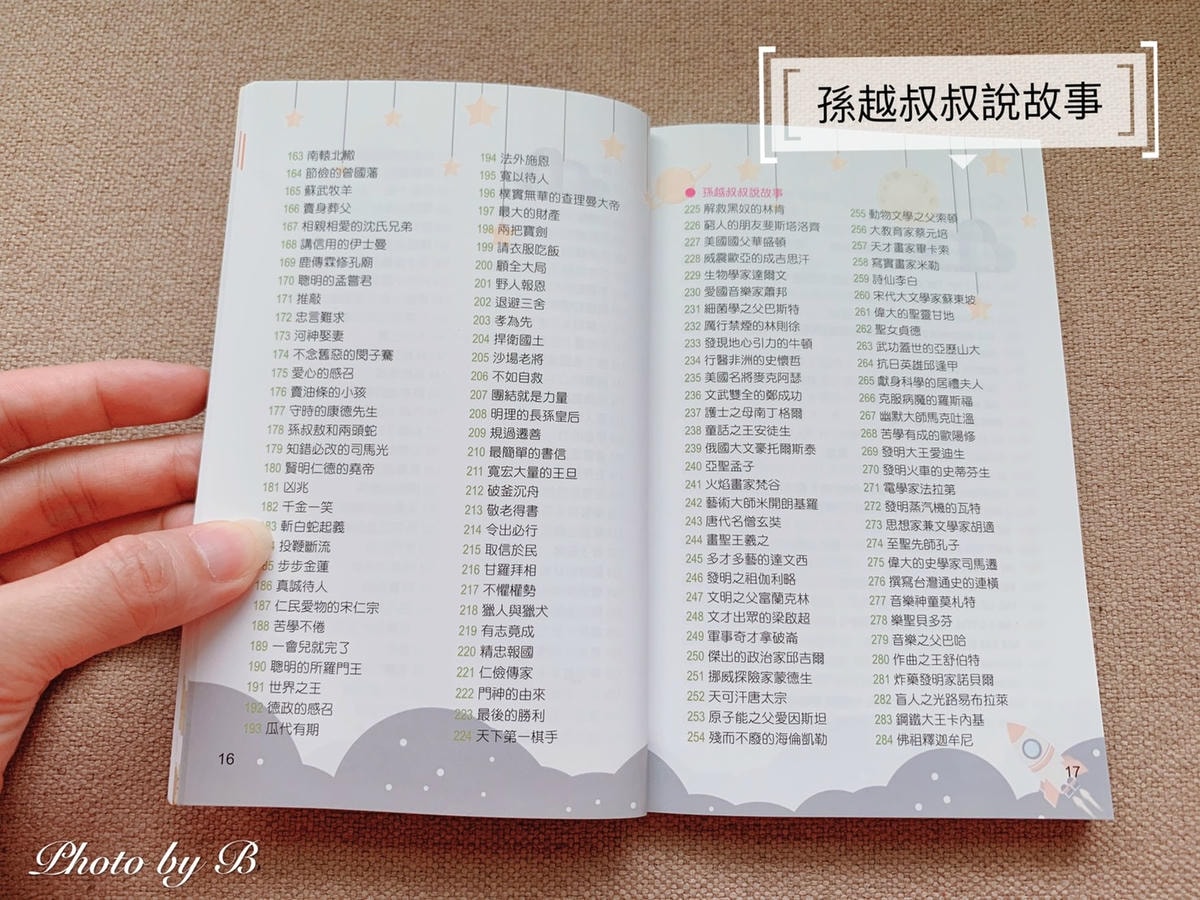 孫越叔叔說故事
163 南轅北轍
164 節儉的曾國藩
165 蘇武牧羊
166 賣身葬父
167 相親相愛的沈氏兄弟
168 講信用的伊士曼
169 鹿傳霖修孔廟
170 聰明的孟嘗君
171 推敲
172 忠言難求
173 河神娶妻
174 不念舊惡的閔子騫
175 愛心的感召
176 賣油條的小孩
177 守時的康德先生
178 孫叔敖和兩頭蛇
179 知錯必改的司馬光
180 賢明仁德的堯帝
181 凶兆
182 千金一笑
83 斬白蛇起義
投鞭斷流
85 步步金蓮
186 真誠待人
187 仁民愛物的宋仁宗
188 苦學不倦
189 一會兒就完了
190 聰明的所羅門王
191 世界之王
192 德政的感召
193 瓜代有期
16
194 法外施恩
195 寬以待人
196 樸實無華的查理曼大帝
197 最大的財產
198 兩把寶劍
199 請衣服吃飯
200 顧全大局
201 野人報恩
202 退避三舍
203 孝為先
204 捍衛國土
205 沙場老將
206 不如自救
207 團結就是力量
208 明理的長孫皇后
209 規過遷善
210 最簡單的書信
211 寬宏大量的王旦
212 破釜沉舟
213 敬老得書
214 令出必行
215 取信於民
216 甘羅拜相
217 不懼權勢
218 獵人與獵犬
219 有志竟成
220 精忠報國
221 仁儉傳家
222 門神的由來
223 最後的勝利
224 天下第一棋手
孫越叔叔說故事
225 解救黑奴的林肯
226 窮人的朋友斐斯塔洛齊
227 美國國父華盛頓
228 威震歐亞的成吉思汗
229 生物學家達爾文
230 愛國音樂家蕭邦
231 細菌學之父巴斯特
232 厲行禁煙的林則徐
233 發現地心引力的牛頓
234 行醫非洲的史懷哲
235 美國名將麥克阿瑟
236 文武雙全的鄭成功
237 護士之母南丁格爾
238 童話之王安徒生
239 俄國大文豪托爾斯泰
240 亞聖孟子
241 火焰畫家梵谷
242 藝術大師米開朗基羅
243 唐代名僧玄奘
244 書聖王羲之
245 多才多藝的達文西
246 發明之祖伽利略
247 文明之父富蘭克林
248 文才出眾的梁啟超
249 軍事奇才拿破崙
250 傑出的政治家邱吉爾
251 挪威探險家蒙德生
252 天可汗唐太宗
253 原子能之父愛因斯坦
254 殘而不廢的海倫凱勒
255 動物文學之父索頓
256 大教育家蔡元培
257 天才畫家畢卡索
258 寫實畫家米勒
259 詩仙李白
260 宋代大文學家蘇東坡
261 偉大的聖靈甘地
262 聖女貞德
263 武功蓋世的亞歷山大
264 抗日英雄邱逢甲
265 獻身科學的居禮夫人
266 克服病魔的羅斯福
267 幽默大師馬克吐溫
268 苦學有成的歐陽修
269 發明大王愛迪生
270 發明火車的史蒂芬生
271 電學家法拉第
272 發明蒸汽機的瓦特
273 思想家兼文學家胡適
274 至聖先師孔子
275 偉大的史學家司馬遷
276 撰寫台灣通史的連橫
277 音樂神童莫札特
278 樂聖貝多芬
279 音樂之父巴哈
280 作曲之王舒伯特
281 炸藥發明家諾貝爾
282 盲人之光路易布拉萊
283 鋼鐵大王卡內基
284 佛祖釋迦牟尼
17
Photo by B